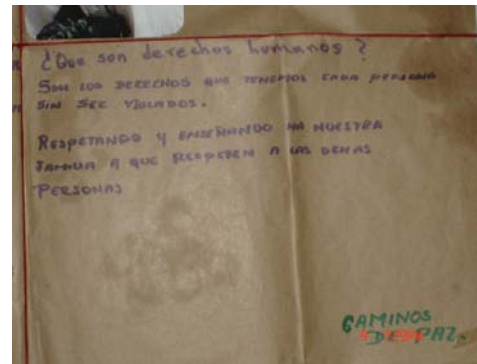 ¿Que son derechos humanos?
SON LOS DERECHOS QUE TENEMOS CADA PERSONA
SIN SER VIOLADOS.
RESPETANDO Y ENSEÑANDO HA NUESTRA
FAMILIA A QUE RESPETEN A LAS DEMAS
PERSONAS
CAMINOS
DE PAZ